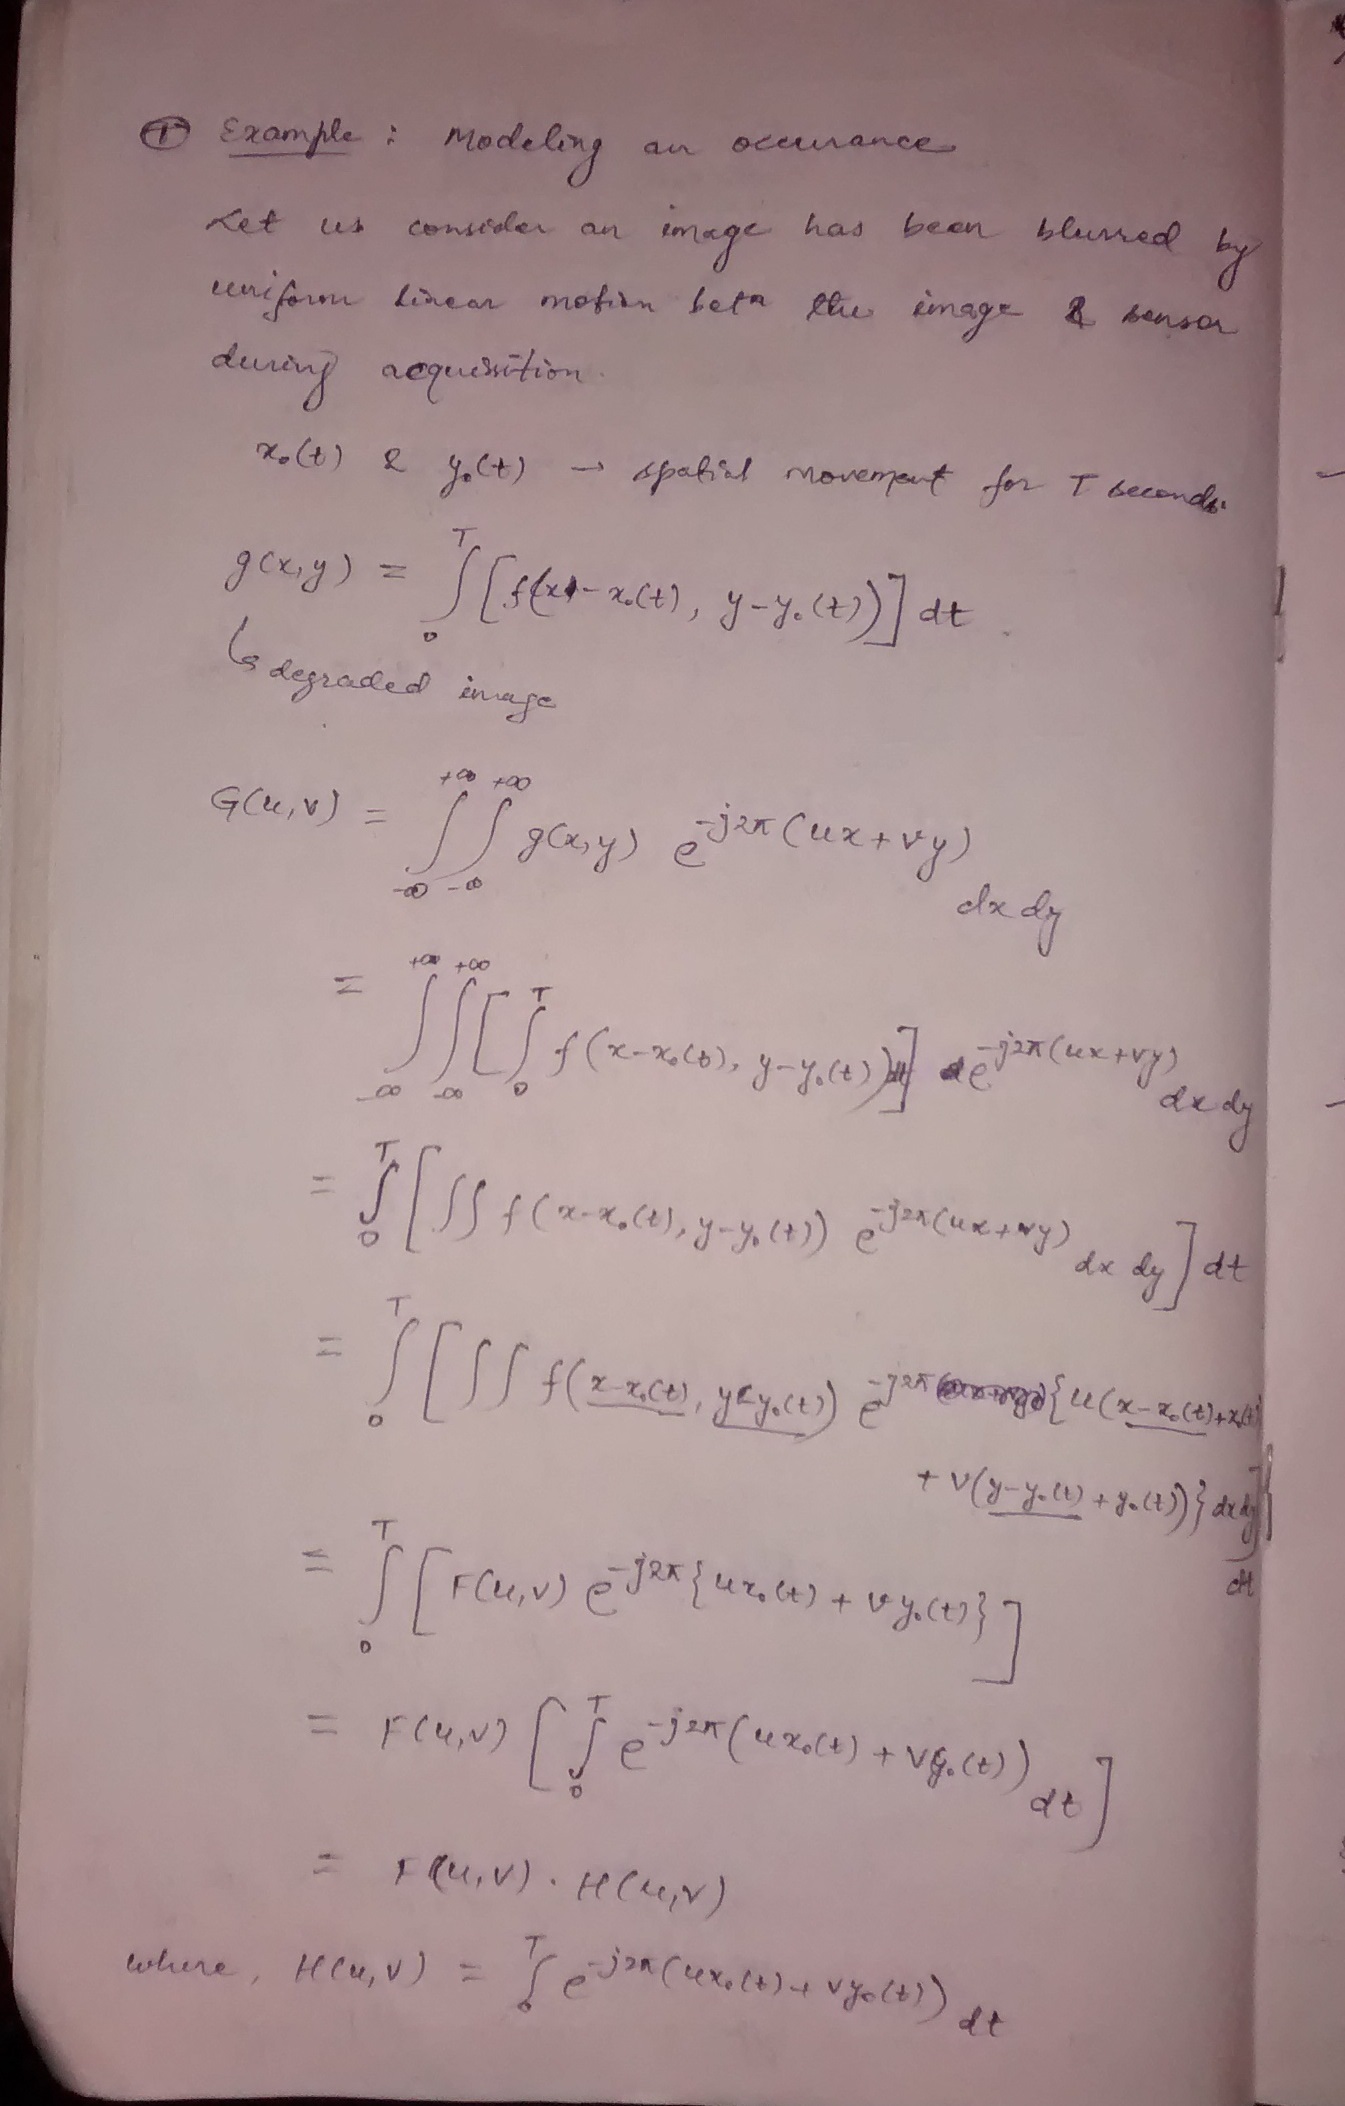 ① Example : Modeling an occurance
Let us consider an image has been blurred by
uniform linear motion betn the image & sensor
during acquisition.
x₀(t) & y₀(t) → spatial movement for T seconds.
g(x,y) = ∫₀ᵀ [f(x - x₀(t), y - y₀(t))] dt.
↳ degraded image
G(u,v) = ∫_{-∞}^{+∞} ∫_{-∞}^{+∞} g(x,y) e^{-j2π(ux+vy)} dx dy
= ∫_{-∞}^{+∞} ∫_{-∞}^{+∞} [∫₀ᵀ f(x-x₀(t), y-y₀(t))] e^{-j2π(ux+vy)} dx dy
= ∫₀ᵀ [∫∫ f(x-x₀(t), y-y₀(t)) e^{-j2π(ux+vy)} dx dy] dt
= ∫₀ᵀ [∫∫ f(x-x₀(t), y-y₀(t)) e^{-j2π{u(x-x₀(t)+x₀(t))
+ v(y-y₀(t)+y₀(t))}} dx dy] dt
= ∫₀ᵀ [F(u,v) e^{-j2π{ux₀(t) + vy₀(t)}}]
= F(u,v) [∫₀ᵀ e^{-j2π(ux₀(t) + vy₀(t))} dt]
= F(u,v) . H(u,v)
where, H(u,v) = ∫₀ᵀ e^{-j2π(ux₀(t) + vy₀(t))} dt